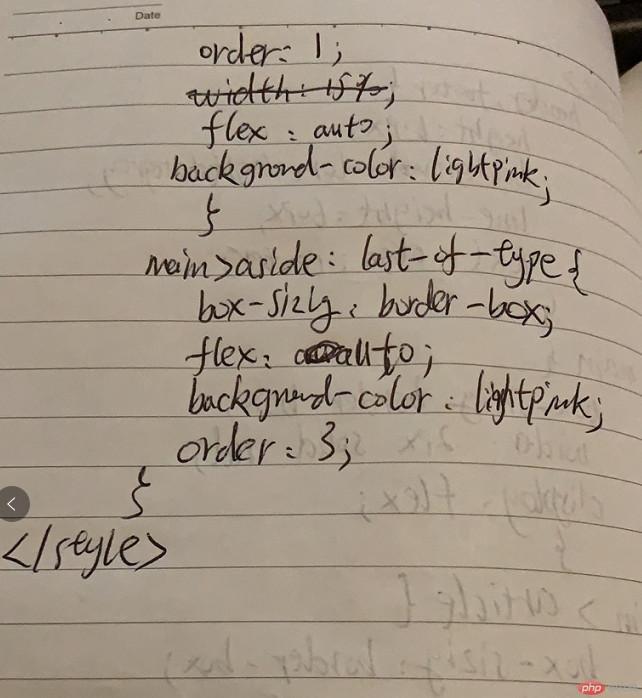 Date
order: 1;
width: 15%;
flex: auto;
background-color: lightpink;
}
main>aside: last-of-type {
box-sizing: border-box;
flex: auto;
background-color: lightpink;
order: 3;
}
</style>
php